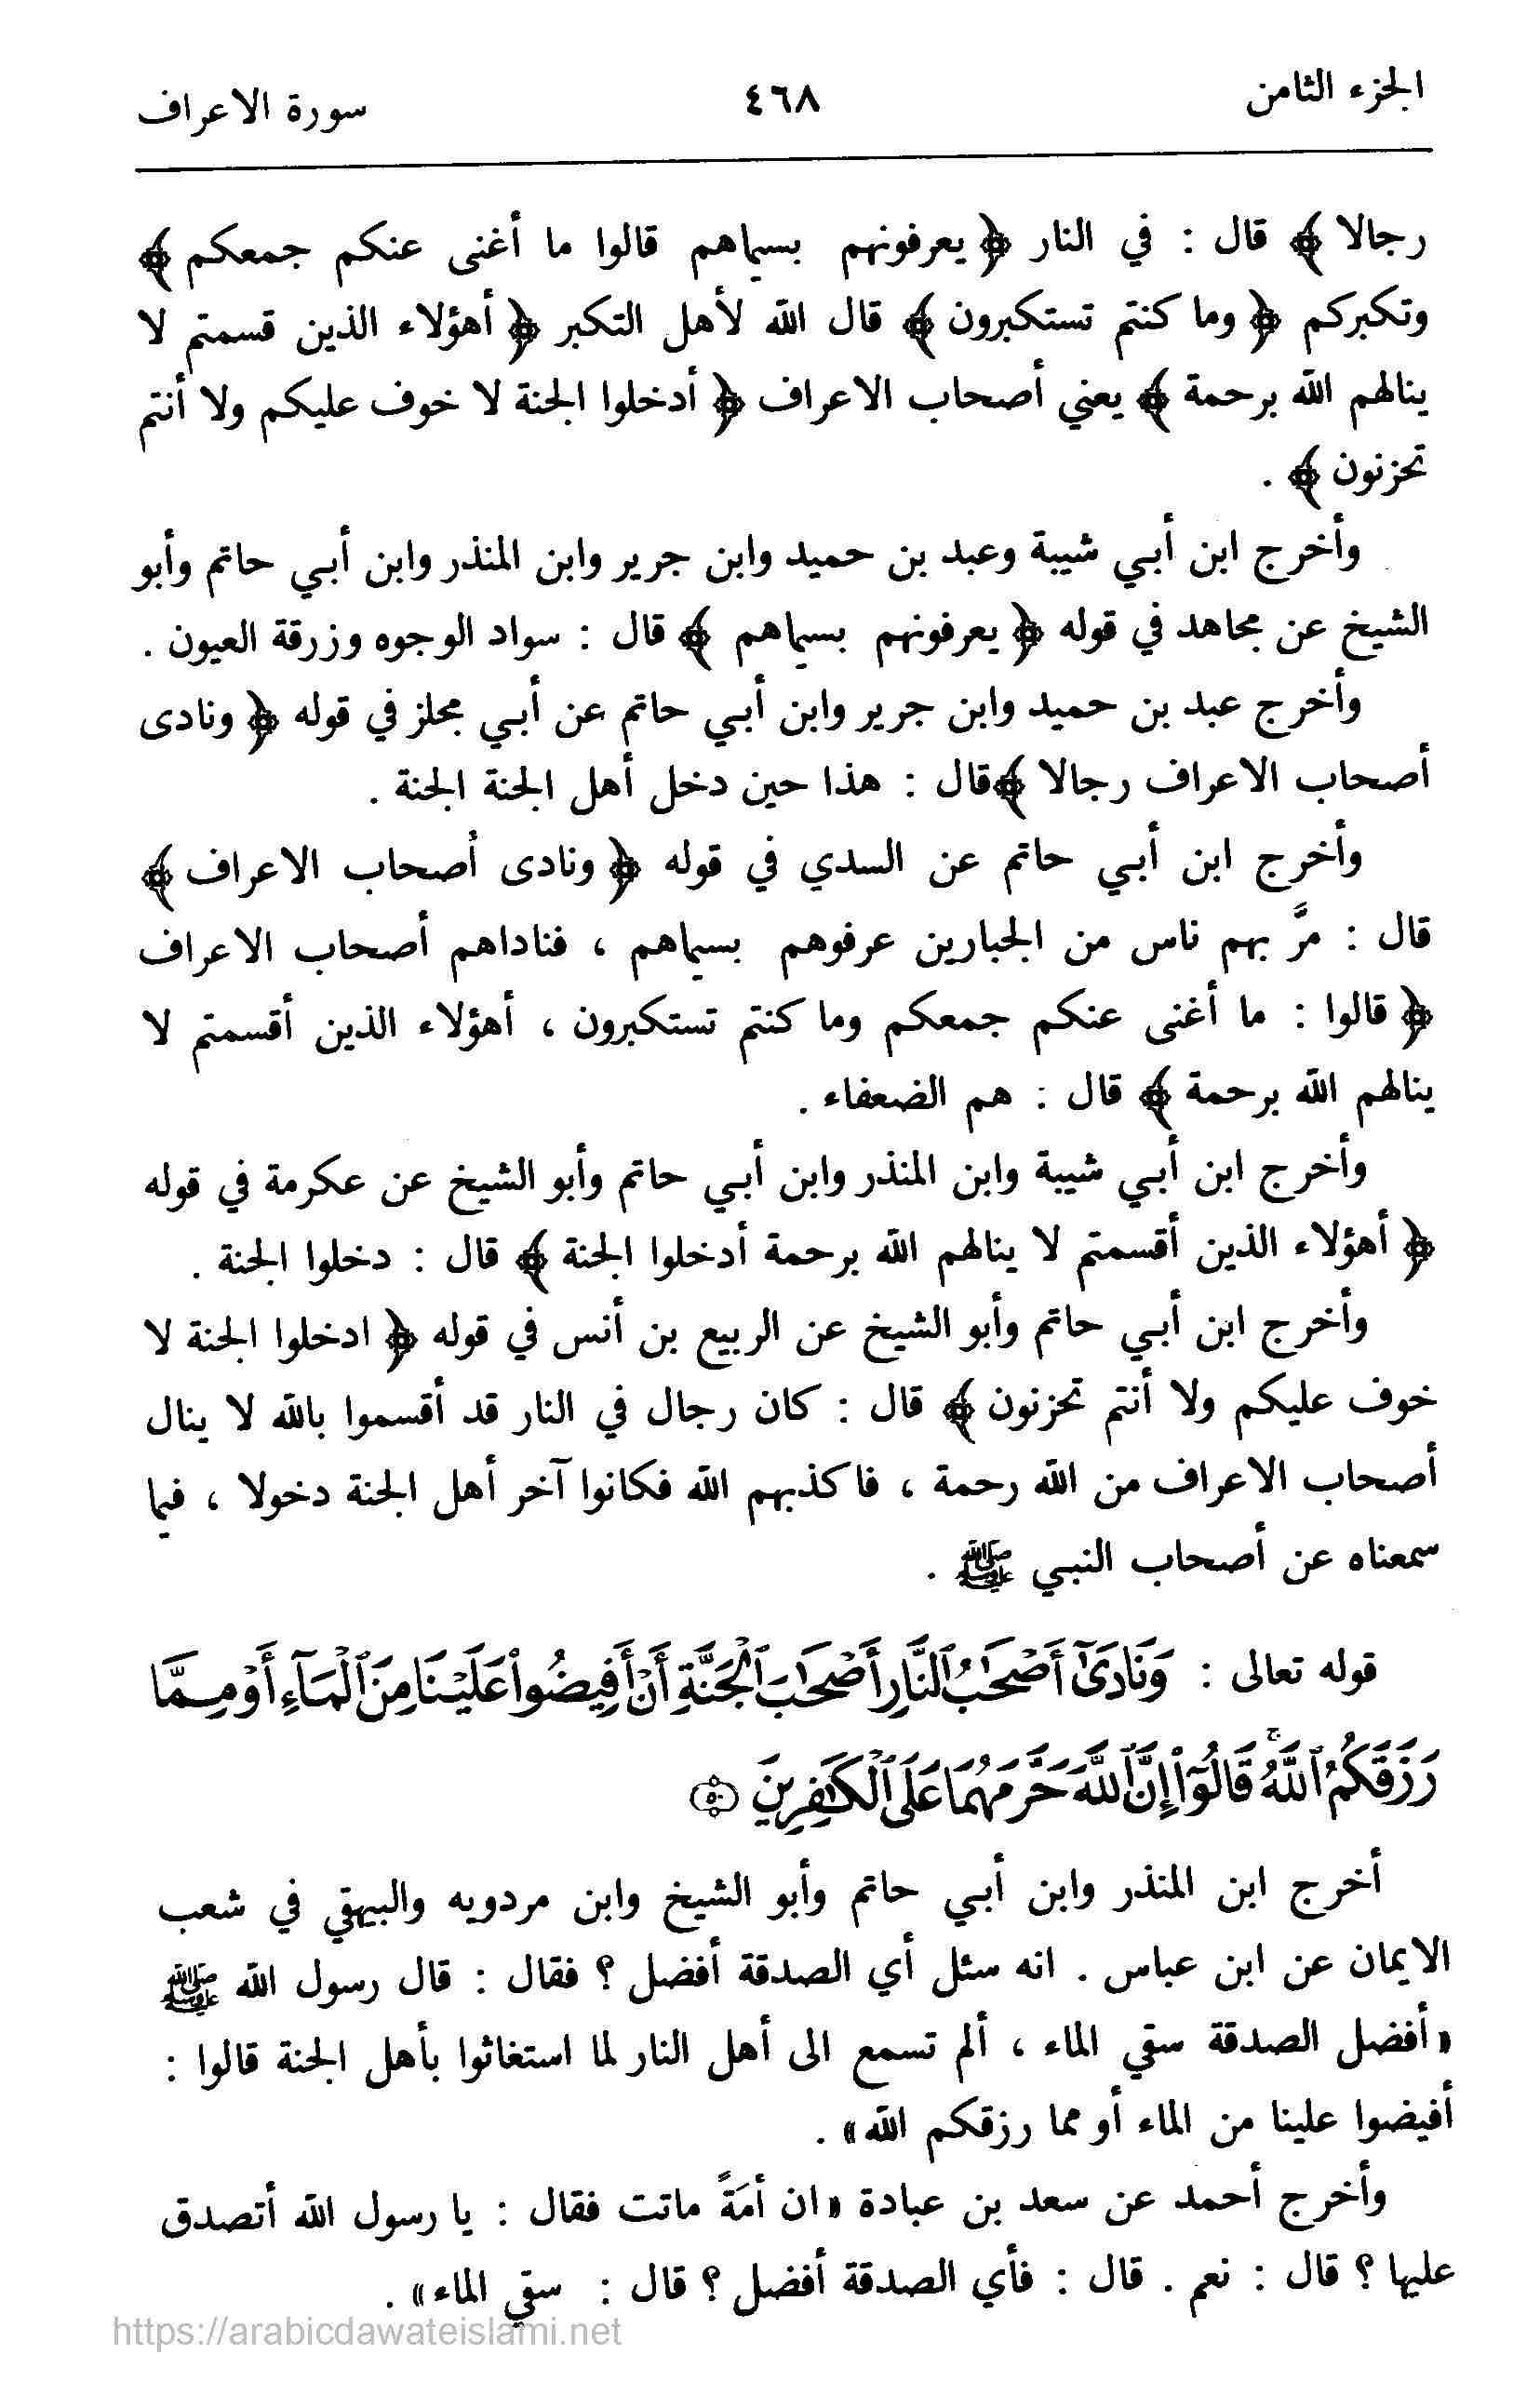 الجزء الثامن ٤٦٨ سورة الاعراف
رجالا ﴾ قال : في النار ﴿ يعرفونهم بسيماهم قالوا ما أغنى عنكم جمعكم ﴾
وتكبركم ﴿ وما كنتم تستكبرون ﴾ قال الله لأهل التكبر ﴿ أهؤلاء الذين قسمتم لا
ينالهم الله برحمة ﴾ يعني أصحاب الاعراف ﴿ أدخلوا الجنة لا خوف عليكم ولا أنتم
تحزنون ﴾ .
وأخرج ابن أبي شيبة وعبد بن حميد وابن جرير وابن المنذر وابن أبي حاتم وأبو
الشيخ عن مجاهد في قوله ﴿ يعرفونهم بسيماهم ﴾ قال : سواد الوجوه وزرقة العيون .
وأخرج عبد بن حميد وابن جرير وابن أبي حاتم عن أبي مجلز في قوله ﴿ ونادى
أصحاب الاعراف رجالا ﴾ قال : هذا حين دخل أهل الجنة الجنة .
وأخرج ابن أبي حاتم عن السدي في قوله ﴿ ونادى أصحاب الاعراف ﴾
قال : مرَّ بهم ناس من الجبارين عرفوهم بسيماهم ، فناداهم أصحاب الاعراف
﴿ قالوا : ما أغنى عنكم جمعكم وما كنتم تستكبرون ، أهؤلاء الذين أقسمتم لا
ينالهم الله برحمة ﴾ قال : هم الضعفاء .
وأخرج ابن أبي شيبة وابن المنذر وابن أبي حاتم وأبو الشيخ عن عكرمة في قوله
﴿ أهؤلاء الذين أقسمتم لا ينالهم الله برحمة أدخلوا الجنة ﴾ قال : دخلوا الجنة .
وأخرج ابن أبي حاتم وأبو الشيخ عن الربيع بن أنس في قوله ﴿ ادخلوا الجنة لا
خوف عليكم ولا أنتم تحزنون ﴾ قال : كان رجال في النار قد أقسموا بالله لا ينال
أصحاب الاعراف من الله رحمة ، فاكذبهم الله فكانوا آخر أهل الجنة دخولا ، فيما
سمعناه عن أصحاب النبي ﷺ .
قوله تعالى : وَنَادَىٰٓ أَصْحَٰبُ ٱلنَّارِ أَصْحَٰبَ ٱلْجَنَّةِ أَنْ أَفِيضُوا۟ عَلَيْنَا مِنَ ٱلْمَآءِ أَوْ مِمَّا
رَزَقَكُمُ ٱللَّهُ ۚ قَالُوٓا۟ إِنَّ ٱللَّهَ حَرَّمَهُمَا عَلَى ٱلْكَٰفِرِينَ ٥٠
أخرج ابن المنذر وابن أبي حاتم وأبو الشيخ وابن مردويه والبيهقي في شعب
الايمان عن ابن عباس . انه سئل أي الصدقة أفضل ؟ فقال : قال رسول الله ﷺ
« أفضل الصدقة سقي الماء ، ألم تسمع الى أهل النار لما استغاثوا بأهل الجنة قالوا :
أفيضوا علينا من الماء أو مما رزقكم الله » .
وأخرج أحمد عن سعد بن عبادة « ان أمَةً ماتت فقال : يا رسول الله أتصدق
عليها ؟ قال : نعم . قال : فأي الصدقة أفضل ؟ قال : سقي الماء » .
https://arabicdawateislami.net